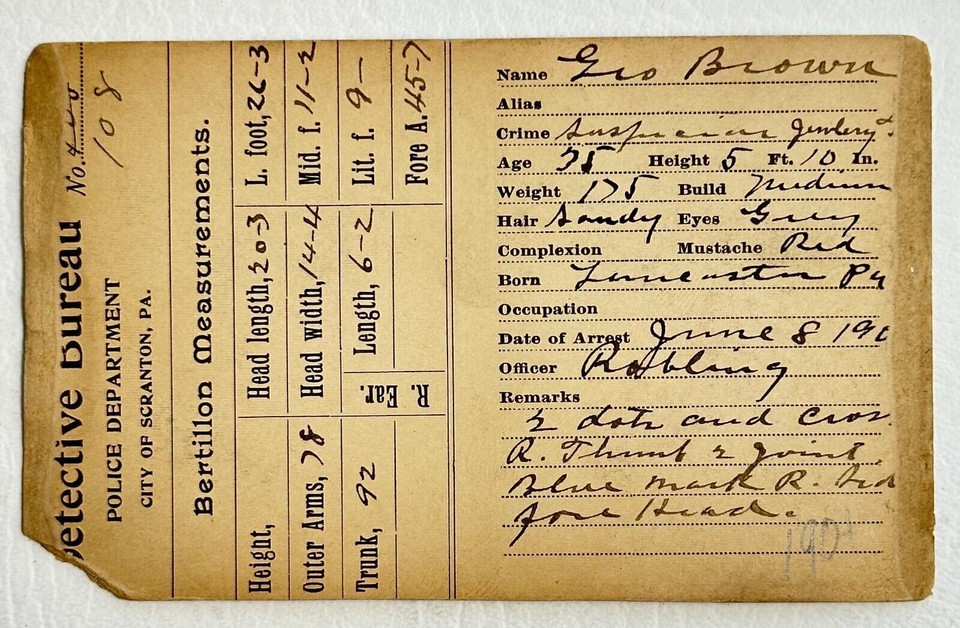 Detective Bureau No. 108
POLICE DEPARTMENT
CITY OF SCRANTON, PA.
Bertillon Measurements.
Height, Head length, 20-3 L. foot, 26-3
Outer Arms, 78 Head width, 14-4 Mid. f. 11-2
Trunk, 92 Length, 6-2 Lit. f. 9-
R. Ear. Fore A. 45-7
Name Geo Brown
Alias
Crime Suspicion Jewlery
Age 35 Height 5 Ft. 10 In.
Weight 175 Build Medium
Hair Sandy Eyes Grey
Complexion Mustache Red
Born Lancaster Pa
Occupation
Date of Arrest June 8 190
Officer Robling
Remarks
2 dots and Cros
R. Thumb 2 Joint.
Blue Mark R. Sid
fore Head.